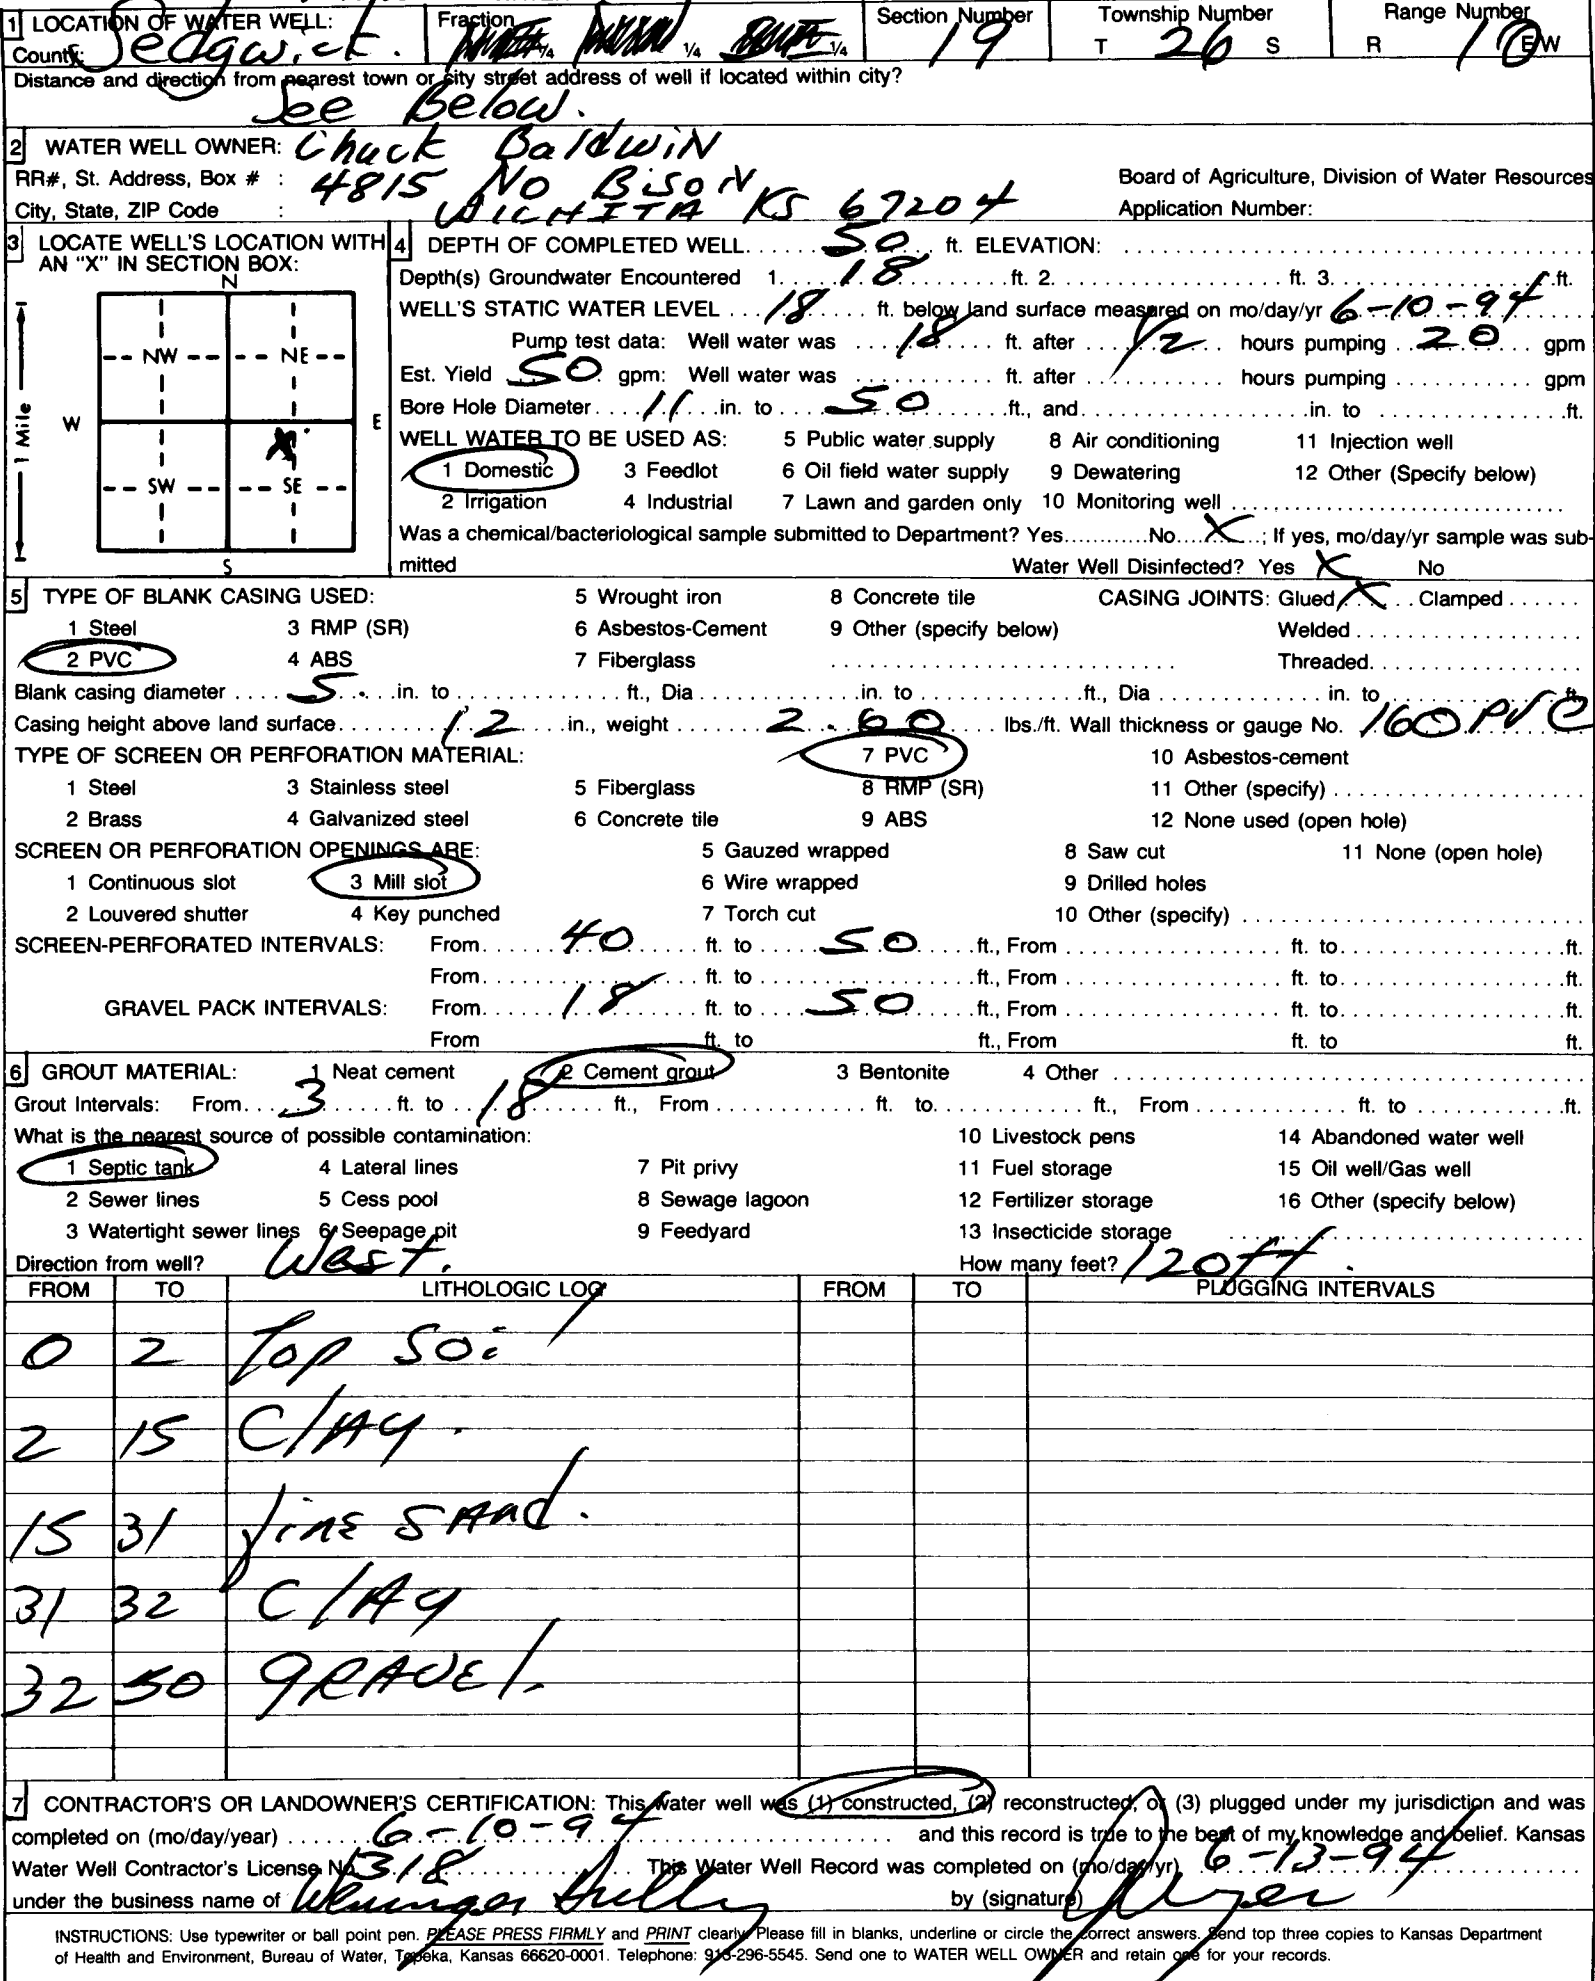 1 LOCATION OF WATER WELL: Fraction Section Number Township Number Range Number
County: Sedgwick. ¼ ¼ ¼ 19 T 26 S R 1 E/W
Distance and direction from nearest town or city street address of well if located within city?
See Below.
2 WATER WELL OWNER: Chuck Baldwin
RR#, St. Address, Box # : 4815 No Bison Board of Agriculture, Division of Water Resources
City, State, ZIP Code : WICHITA KS 67204 Application Number:
3 LOCATE WELL'S LOCATION WITH AN "X" IN SECTION BOX:
N
NW NE
W E
X
SW SE
S
1 Mile
4 DEPTH OF COMPLETED WELL 50 ft. ELEVATION:
Depth(s) Groundwater Encountered 1. 18 ft. 2. ft. 3. ft.
WELL'S STATIC WATER LEVEL 18 ft. below land surface measured on mo/day/yr 6-10-94
Pump test data: Well water was 18 ft. after 1/2 hours pumping 20 gpm
Est. Yield 50 gpm: Well water was ft. after hours pumping gpm
Bore Hole Diameter 11 in. to 50 ft., and in. to ft.
WELL WATER TO BE USED AS: 5 Public water supply 8 Air conditioning 11 Injection well
1 Domestic 3 Feedlot 6 Oil field water supply 9 Dewatering 12 Other (Specify below)
2 Irrigation 4 Industrial 7 Lawn and garden only 10 Monitoring well
Was a chemical/bacteriological sample submitted to Department? Yes No X ; If yes, mo/day/yr sample was sub-
mitted Water Well Disinfected? Yes X No
5 TYPE OF BLANK CASING USED: 5 Wrought iron 8 Concrete tile CASING JOINTS: Glued X Clamped
1 Steel 3 RMP (SR) 6 Asbestos-Cement 9 Other (specify below) Welded
2 PVC 4 ABS 7 Fiberglass Threaded
Blank casing diameter 5 in. to ft., Dia in. to ft., Dia in. to ft.
Casing height above land surface 12 in., weight 2.60 lbs./ft. Wall thickness or gauge No. 160 PVC
TYPE OF SCREEN OR PERFORATION MATERIAL: 7 PVC 10 Asbestos-cement
1 Steel 3 Stainless steel 5 Fiberglass 8 RMP (SR) 11 Other (specify)
2 Brass 4 Galvanized steel 6 Concrete tile 9 ABS 12 None used (open hole)
SCREEN OR PERFORATION OPENINGS ARE: 5 Gauzed wrapped 8 Saw cut 11 None (open hole)
1 Continuous slot 3 Mill slot 6 Wire wrapped 9 Drilled holes
2 Louvered shutter 4 Key punched 7 Torch cut 10 Other (specify)
SCREEN-PERFORATED INTERVALS: From 40 ft. to 50 ft., From ft. to ft.
From ft. to ft., From ft. to ft.
GRAVEL PACK INTERVALS: From 18 ft. to 50 ft., From ft. to ft.
From ft. to ft., From ft. to ft.
6 GROUT MATERIAL: 1 Neat cement 2 Cement grout 3 Bentonite 4 Other
Grout Intervals: From 3 ft. to 18 ft., From ft. to ft., From ft. to ft.
What is the nearest source of possible contamination: 10 Livestock pens 14 Abandoned water well
1 Septic tank 4 Lateral lines 7 Pit privy 11 Fuel storage 15 Oil well/Gas well
2 Sewer lines 5 Cess pool 8 Sewage lagoon 12 Fertilizer storage 16 Other (specify below)
3 Watertight sewer lines 6 Seepage pit 9 Feedyard 13 Insecticide storage
Direction from well? West. How many feet? 120 ft.
FROM TO LITHOLOGIC LOG FROM TO PLUGGING INTERVALS
0 2 Top Soil
2 15 Clay.
15 31 fine Sand.
31 32 Clay
32 50 gravel.
7 CONTRACTOR'S OR LANDOWNER'S CERTIFICATION: This water well was (1) constructed, (2) reconstructed, or (3) plugged under my jurisdiction and was
completed on (mo/day/year) 6-10-94 and this record is true to the best of my knowledge and belief. Kansas
Water Well Contractor's License No. 318 This Water Well Record was completed on (mo/day/yr) 6-13-94
under the business name of by (signature)
INSTRUCTIONS: Use typewriter or ball point pen. PLEASE PRESS FIRMLY and PRINT clearly. Please fill in blanks, underline or circle the correct answers. Send top three copies to Kansas Department
of Health and Environment, Bureau of Water, Topeka, Kansas 66620-0001. Telephone: 913-296-5545. Send one to WATER WELL OWNER and retain one for your records.